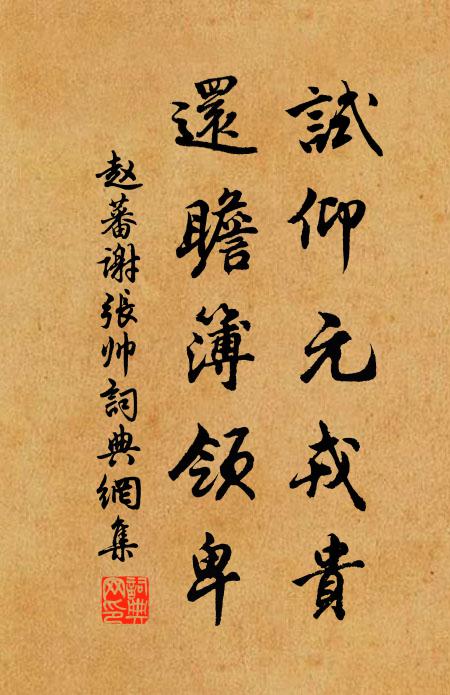 試仰元戎貴
還瞻簿領卑
赵蕃谢張帅詞典網集
詞典网印